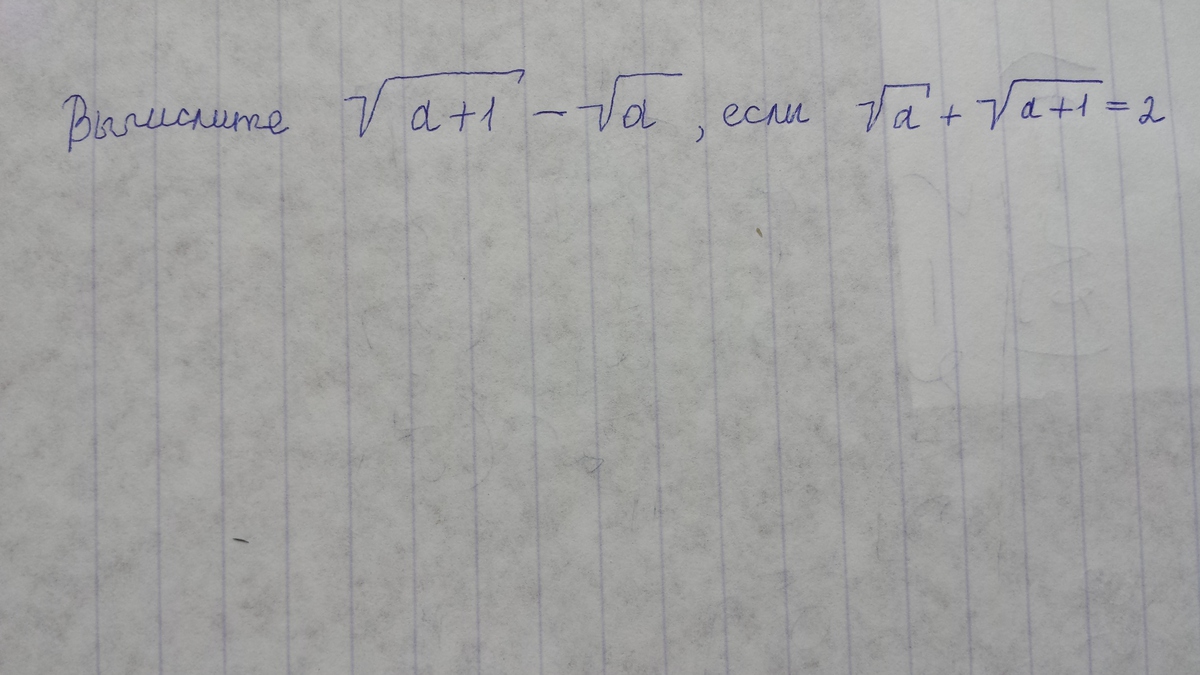 Вычислите √(a+1) - √a, если √a + √(a+1) = 2